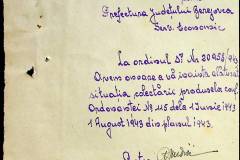 Prefectura Județului Gorj
Serv. Economic
La ordinul Dv. No 20958/943
Avem onoare a vă înainta alăturat
situația colectării produselor conf.
Ordonanței No 115 dela 1 Iunie 1943
1 August 1943 din planul 1943.